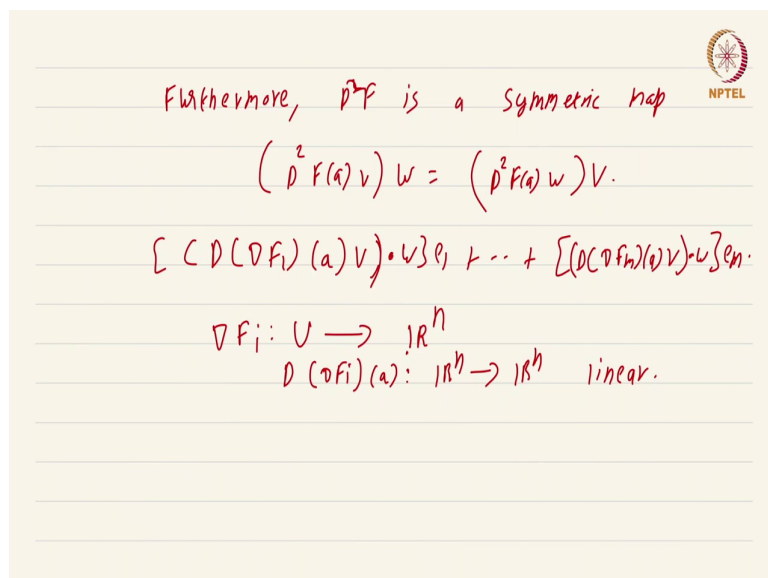 NPTEL
Furthermore, D²F is a symmetric map
(D²F(a) v) w = (D²F(a) w) v.
[(D(∇F₁)(a)v)•w]e₁ + ... + [(D(∇Fₘ)(a)v)•w]eₘ.
∇Fᵢ: U ⟶ ℝⁿ
D(∇Fᵢ)(a): ℝⁿ → ℝⁿ linear.